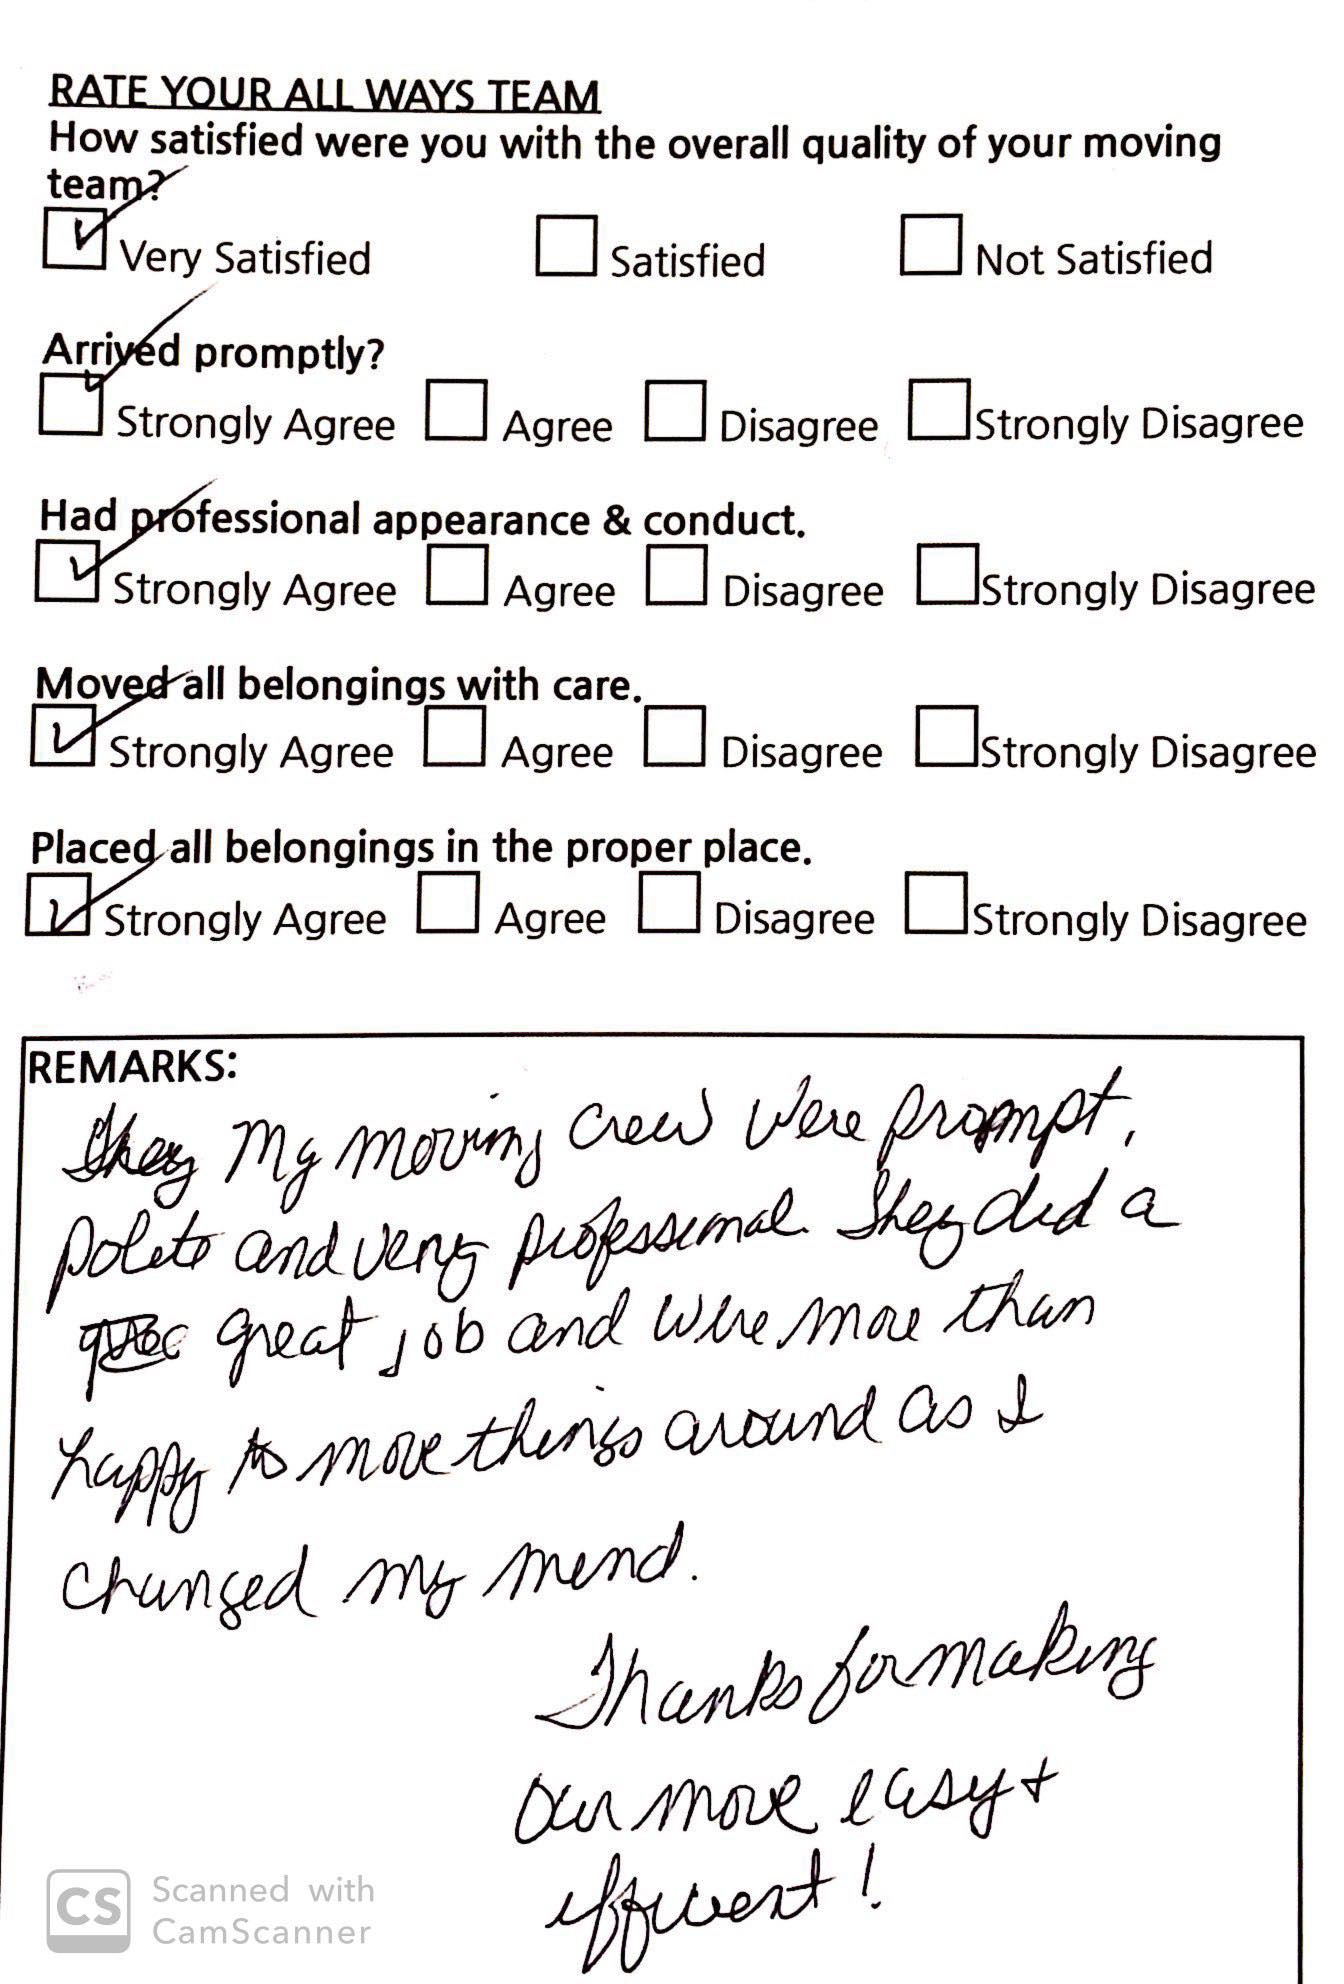 RATE YOUR ALL WAYS TEAM
How satisfied were you with the overall quality of your moving
team?
Very Satisfied Satisfied Not Satisfied
Arrived promptly?
Strongly Agree Agree Disagree Strongly Disagree
Had professional appearance & conduct.
Strongly Agree Agree Disagree Strongly Disagree
Moved all belongings with care.
Strongly Agree Agree Disagree Strongly Disagree
Placed all belongings in the proper place.
Strongly Agree Agree Disagree Strongly Disagree
REMARKS:
They My moving crew were prompt,
polite and very professional. They did a
great job and were more than
happy to move things around as I
changed my mind.
Thanks for making
our move easy +
efficient!
CS Scanned with
CamScanner